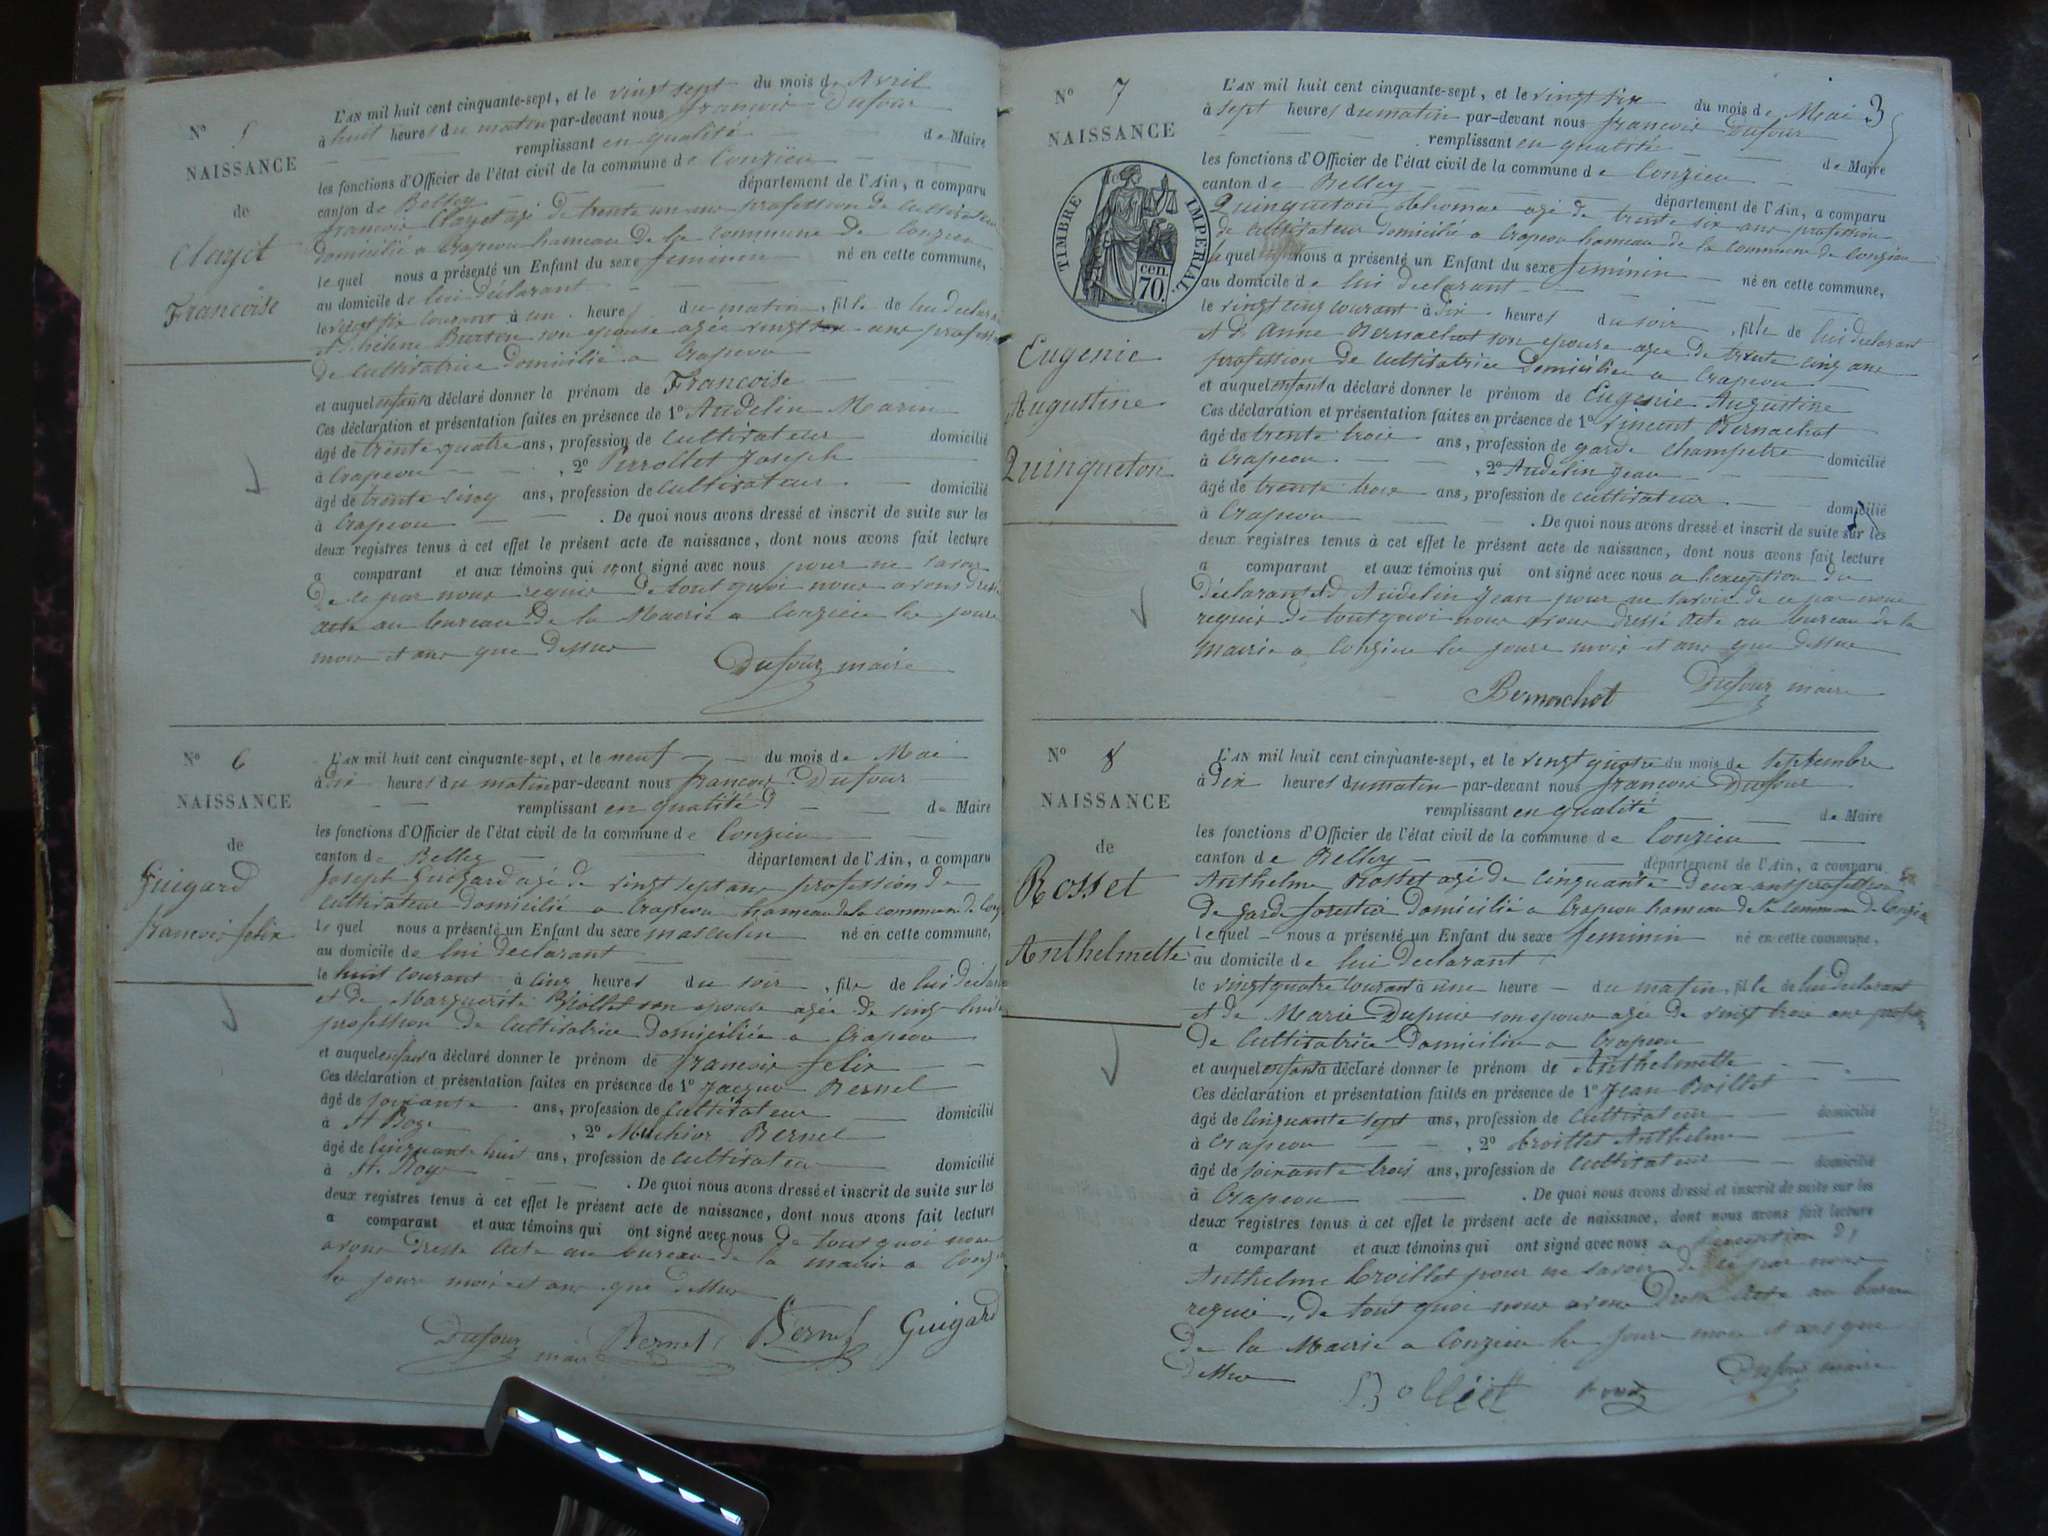 N° 5
NAISSANCE
de
Clayet
Francoise
L'AN mil huit cent cinquante-sept, et le vingt sept du mois de Avril
à huit heures du matin par-devant nous francois Dufour
remplissant en qualité de Maire
les fonctions d'Officier de l'état civil de la commune de Conzieu
canton de Belley département de l'Ain, a comparu
francois Clayet agé de trente un ans profession de cultivateur
domicilié a Crapeou hameau de la commune de Conzieu
le quel nous a présenté un Enfant du sexe feminin né en cette commune,
au domicile de lui déclarant
le vingt six courant à un heures du matin, fille de lui declarant
et d'hélène son epouse agée vingt ans profession
de cultivatrice domiciliée a Crapeou
et auquel enfant a déclaré donner le prénom de Francoise
Ces déclaration et présentation faites en présence de 1° Audelin Marin
âgé de trente quatre ans, profession de cultivateur domicilié
à Crapeou, 2° Perrollet Joseph
âgé de trente cinq ans, profession de cultivateur domicilié
à Crapeou. De quoi nous avons dressé et inscrit de suite sur les
deux registres tenus à cet effet le présent acte de naissance, dont nous avons fait lecture
a comparant et aux témoins qui n'ont signé avec nous pour ne savoir
de ce par nous requis de tout quoi nous avons dressé
acte au bureau de la Mairie a Conzieu les jours
mois et ans que dessus
Dufour maire
N° 6
NAISSANCE
de
Guigard
francois felix
L'AN mil huit cent cinquante-sept, et le neuf du mois de Mai
à dix heures du matin par-devant nous francois Dufour
remplissant en qualité d de Maire
les fonctions d'Officier de l'état civil de la commune de Conzieu
canton de Belley département de l'Ain, a comparu
Joseph Guigard agé de vingt sept ans profession de
cultivateur domicilié a Crapeou hameau de la commune de
le quel nous a présenté un Enfant du sexe masculin né en cette commune,
au domicile de lui declarant
le huit courant à cinq heures du soir, fils de lui declarant
et de Marguerite son epouse agée de vingt huit
profession de cultivatrice domiciliée a Crapeou
et auquel enfant a déclaré donner le prénom de francois felix
Ces déclaration et présentation faites en présence de 1° Jacques Bernel
âgé de soixante ans, profession de cultivateur domicilié
à St Bogs, 2° Melchior Bernel
âgé de cinquante huit ans, profession de cultivateur domicilié
à St. De quoi nous avons dressé et inscrit de suite sur les
deux registres tenus à cet effet le présent acte de naissance, dont nous avons fait lecture
a comparant et aux témoins qui ont signé avec nous De tout quoi nous
avons dressé acte au bureau de la mairie a
les jours mois et ans que dessus
Dufour maire Bernel Bernel Guigard
N° 7
NAISSANCE
TIMBRE IMPERIAL
cen.
70.
Eugenie
Augustine
Quinqueton
3
L'AN mil huit cent cinquante-sept, et le vingt six du mois de Mai
à sept heures du matin par-devant nous francois Dufour
remplissant en qualité de Maire
les fonctions d'Officier de l'état civil de la commune de Conzieu
canton de Belley département de l'Ain, a comparu
Quinqueton thomas agé de trente six ans profession
de cultivateur domicilié a Crapeou hameau de la commune de Conzieu
le quel nous a présenté un Enfant du sexe feminin né en cette commune,
au domicile de lui declarant
le vingt cinq courant à dix heures du soir, fille de lui declarant
et d'Anne Bernachot son epouse agee de trente cinq ans
profession de cultivatrice domiciliée a Crapeou
et auquel enfant a déclaré donner le prénom de Eugenie Augustine
Ces déclaration et présentation faites en présence de 1° Vincent Bernachot
âgé de trente trois ans, profession de garde champetre domicilié
à Crapeou, 2° Audelin Jean
âgé de trente trois ans, profession de cultivateur domicilié
à Crapeou. De quoi nous avons dressé et inscrit de suite sur les
deux registres tenus à cet effet le présent acte de naissance, dont nous avons fait lecture
a comparant et aux témoins qui ont signé avec nous a l'exception du
déclarant et Audelin Jean pour ne savoir de ce par nous
requis de tout quoi nous avons dressé acte au bureau de la
mairie a Conzieu les jours mois et ans que dessus
Bernachot Dufour maire
N° 8
NAISSANCE
de
Rosset
Anthelmette
L'AN mil huit cent cinquante-sept, et le vingt quatre du mois de septembre
à dix heures du matin par-devant nous francois Dufour
remplissant en qualité de Maire
les fonctions d'Officier de l'état civil de la commune de Conzieu
canton de Belley département de l'Ain, a comparu
Anthelme Rosset agé de cinquante deux ans profession
de garde forestier domicilié a Crapeou hameau de la commune de Conzieu
le quel nous a présenté un Enfant du sexe feminin né en cette commune,
au domicile de lui declarant
le vingt quatre courant à une heure du matin, fille de lui declarant
et de Marie Dupuis son epouse agée de vingt ans
de cultivatrice domiciliée a Crapeou
et auquel enfant a déclaré donner le prénom de Anthelmette
Ces déclaration et présentation faites en présence de 1° Jean
âgé de cinquante sept ans, profession de cultivateur domicilié
à Crapeou, 2° Anthelme
âgé de soixante trois ans, profession de cultivateur domicilié
à Crapeou. De quoi nous avons dressé et inscrit de suite sur les
deux registres tenus à cet effet le présent acte de naissance, dont nous avons fait lecture
a comparant et aux témoins qui ont signé avec nous a l'exception d'
Anthelme pour ne savoir de ce par nous
requis, de tout quoi nous avons dressé acte au bureau
de la Mairie a Conzieu les jours mois et ans que
dessus
Dufour maire